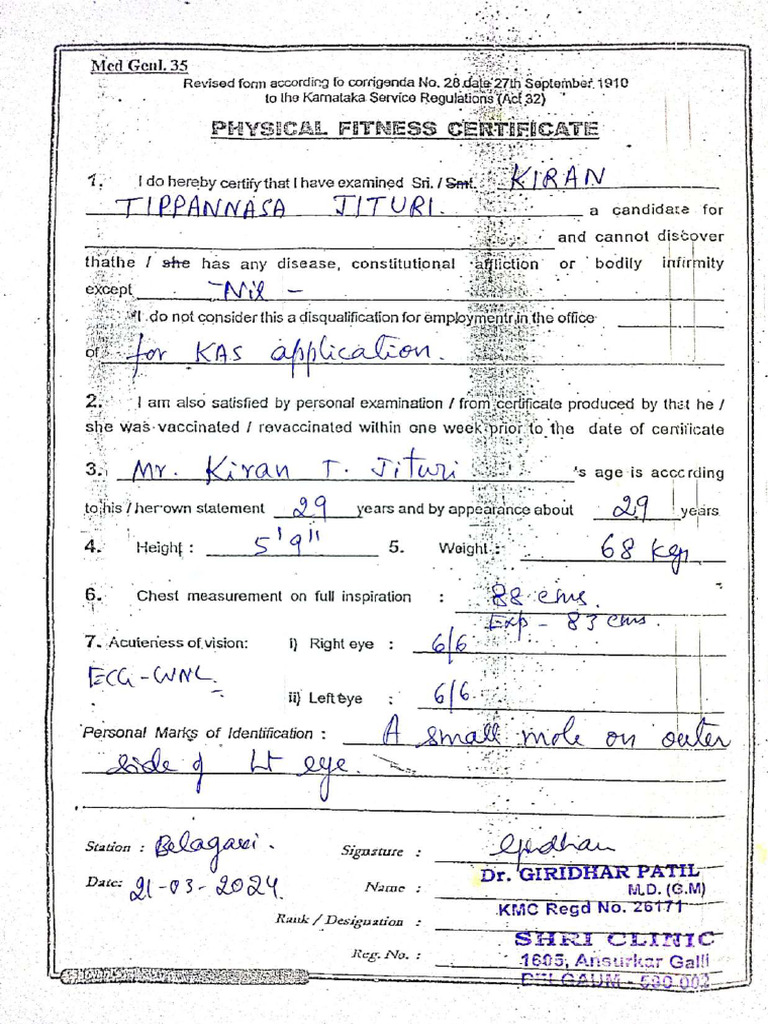 Med Genl. 35
Revised form according to corrigenda No. 28 date 27th September 1910
to the Karnataka Service Regulations (Act 32)
PHYSICAL FITNESS CERTIFICATE
1. I do hereby certify that I have examined Sri. / Smt. KIRAN
TIPPANNASA JITURI. a candidate for
and cannot discover
thathe / she has any disease, constitutional affliction or bodily infirmity
except -Nil-
*I do not consider this a disqualification for employmentr.in the office
of for KAS application.
2. I am also satisfied by personal examination / from certificate produced by that he /
she was vaccinated / revaccinated within one week prior to the date of certificate
3. Mr. Kiran T. Jituri 's age is according
to his / her own statement 29 years and by appearance about 29 years
4. Height : 5'9" 5. Weight : 68 kgs
6. Chest measurement on full inspiration : 88 cms.
Exp - 83 cms.
7. Acuteness of vision: i) Right eye : 6/6
ECG-WNL
ii) Left eye : 6/6
Personal Marks of Identification : A small mole on outer
side of Lt eye.
Station : Belagavi.
Signature :
Dr. GIRIDHAR PATIL
Date: 21-03-2024
Name :
M.D. (G.M)
KMC Regd No. 26171
Rank / Designation :
SHRI CLINIC
Reg. No. :
1605, Ansurkar Galli
BELGAUM - 590 002